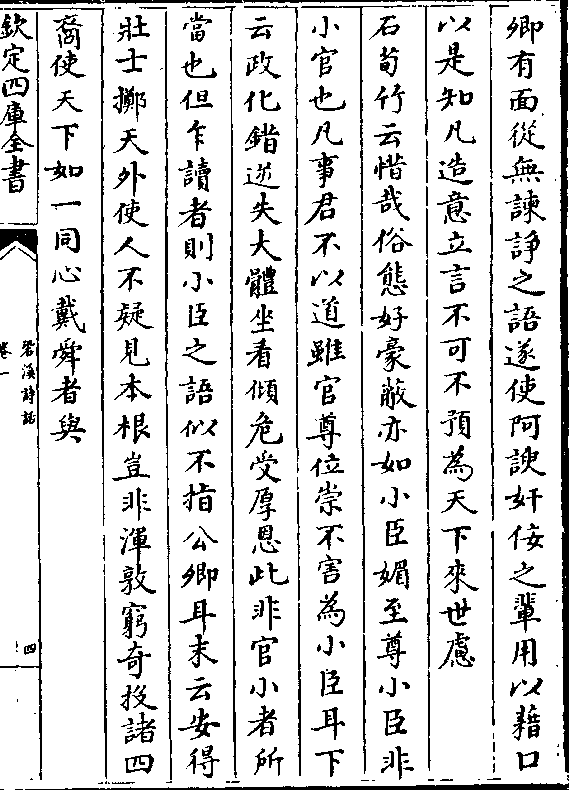 卿有面從無諫諍之語遂使阿諛奸佞之輩用以藉口
以是知凡造意立言不可不預為天下來世慮
石荀竹云惜哉俗態好豪蔽亦如小臣媚至尊小臣非
小官也凡事君不以道雖官尊位崇不害為小臣耳下
云政化錯逆失大體坐看傾危受厚恩此非官小者所
當也但乍讀者則小臣之語似不指公卿耳末云安得
壯士擲天外使人不疑見本根豈非渾敦窮奇投諸四
裔使天下如一同心戴舜者與
欽定四庫全書
䂬溪詩話
卷一
四